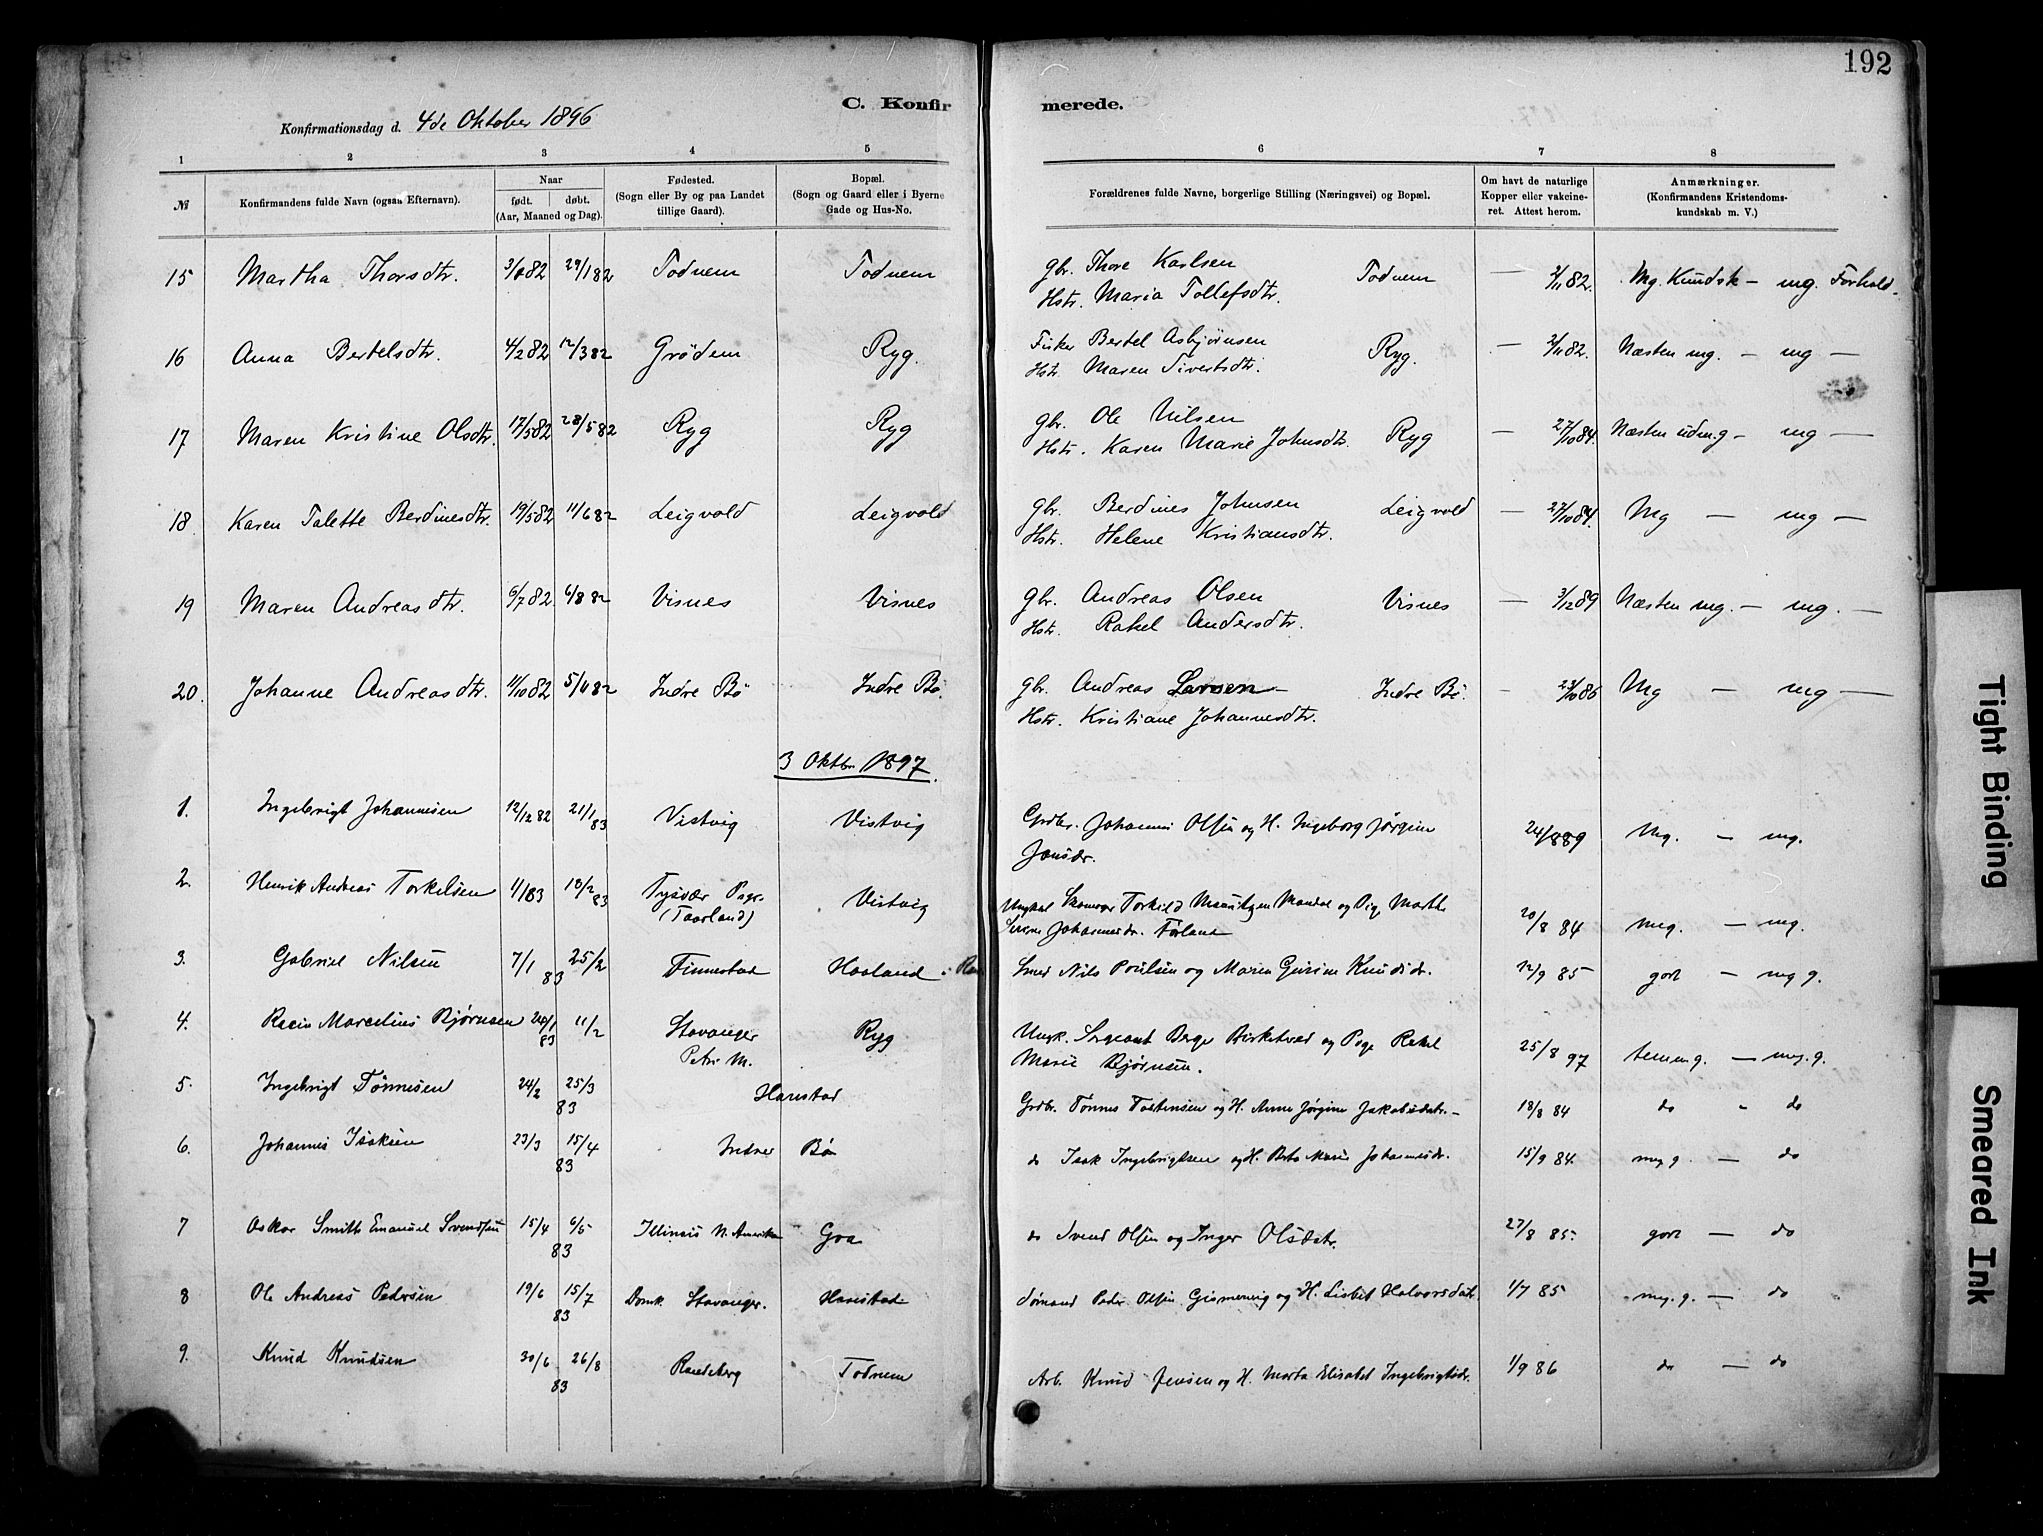 192
C. Konfirmerede.
Konfirmationsdag d. 4de Oktober 1896
1 2 3 4 5 6 7 8
№ Konfirmandens fulde Navn (ogsaa Efternavn). Naar født. døbt. (Aar, Maaned og Dag). Fødested. (Sogn eller By og paa Landet tillige Gaard). Bopæl. (Sogn og Gaard eller i Byerne Gade og Hus-No. Forældrenes fulde Navne, borgerlige Stilling (Næringsvei) og Bopæl. Om havt de naturlige Kopper eller vakcineret. Attest herom. Anmærkninger. (Konfirmandens Kristendomskundskab m. V.)
15 Martha Thorsdtr. 29/1 82 Todnem Todnem gbr. Thore Karlsen Todnem — 2/11 82. Mg. Kundsk — mg. Forhold.
Hstr. Maria Tollefsdtr.
16 Anna Bertelsdtr. 4/2 82 12/3 82 Grödem Ryg. Fisker Bertel Asbjørnsen Ryg. — 2/11 82. Næsten mg. — mg —
Hstr. Maren Sivertsdtr.
17 Maren Kristine Olsdtr. 17/5 82 28/5 82 Ryg Ryg gbr. Ole Nilsen Ryg — 27/10 84. Næsten udm.g — mg —
Hstr. Karen Marie Johnsdtr.
18 Karen Talette Berdinesdtr. 19/5 82 11/6 82 Leigvold Leigvold gbr. Berdines Johnsen Leigvold — 27/10 84. Mg — mg —
Hstr. Helene Kristiansdtr.
19 Maren Andreasdtr. 6/7 82 6/8 82 Visnes Visnes gbr. Andreas Olsen Visnes — 3/12 89 Næsten mg. — mg. —
Hstr. Rakel Andersdtr.
20. Johanne Andreasdtr. 11/10 82 5/11 82 Indre Bö Indre Bö. gbr. Andreas Larsen — Indre Bö. — 23/10 86 Mg — mg —
Hstr. Kristiane Johannesdtr.
3 Oktbr. 1897.
1. Ingebrigt Johannesen 12/12 82 21/1 83 Vistvig Vistvig Grdbr. Johannes Olsen og H. Ingeborg Jørgine 24/8 89 Mg. — mg.
Jonsdr.
2. Henrik Andreas Torkelsen 1/1 83 18/2 83 Tysvær Psgr. (Taarland) Vistvig Ungkal Torkild Mandal og Pige Marthe 20/8 84 meg. — mg.
Johannesdr. Førland
3. Gabriel Nilsen 7/1 25/2 83 Finnestad Haaland i Smed Nils Poulsen og Maren Gurine Knudsdr. 12/9 85 godt — mg g.
4. Marcelius Bjørnsen 24/1 83 11/2 Stavanger Petri M. Ryg Ungk. Sergeant Berge Birketved og Pige Rakel 25/8 97 temm g. — mg. g.
Marie Bjørnsen.
5. Ingebrigt Tønnesen 24/2 25/3 83 Harestad Grdbr. Tønnes Tostensen og H. Anne Jørgine Jakobsdatr. — 18/8 84 do " do
6. Johannes Isaksen 23/3 15/4 83 Indre Bø do Isak Ingebrigtsen og H. Berta Marie Johannesdr. 15/9 84. mg g. — do
7 Oskar Smith Emanuel Svendsen 15/4 6/5 83 Illinois N. Amerika Goa do Svend Olsen og Inger Olsdatr. 27/8 85. godt — do
8 Ole Andreas Pedersen 19/6 15/7 83 Domk. Stavanger. Harestad Sømand Peder Olsen Gismervig og H. Lisbet Halvorsdatr. 1/7 85 mg. g. — do
9. Knud Knudsen 30/6 26/8 83 Randeberg Todnem Arb. Knud Jensen og H. Marta Elisabet Ingebrigtsdr. 1/9 86 do — do
Tight Binding
Smeared Ink